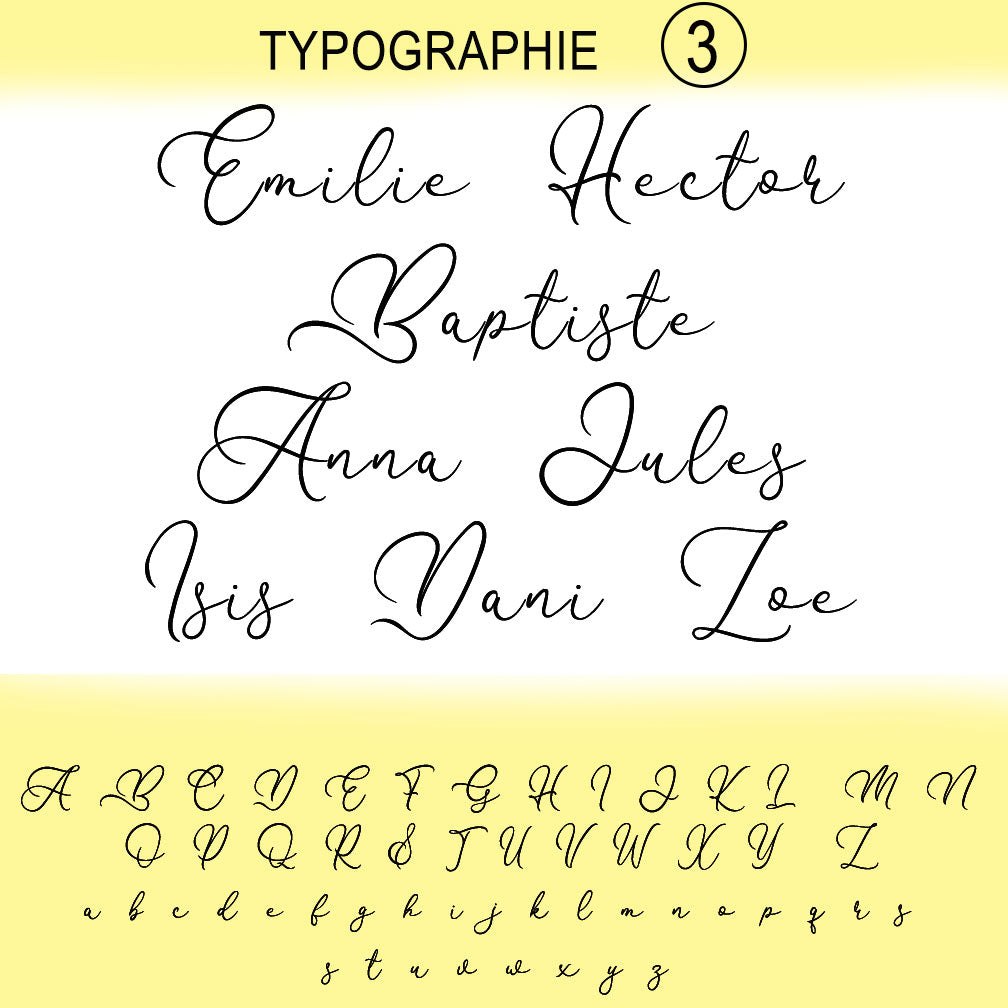 TYPOGRAPHIE 3
Emilie Hector
Baptiste
Anna Jules
Isis Dani Zoe
A B C D E F G H I J K L M N
O P Q R S T U V W X Y Z
a b c d e f g h i j k l m n o p q r s
s t u v w x y z